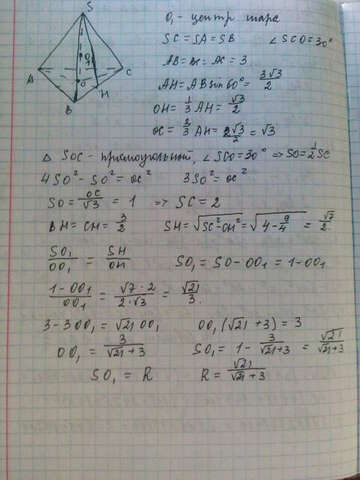 S
O₁
A
C
O
B
H
O₁ - центр шара
SC = SA = SB ∠SCO = 30°
AB = BC = AC = 3
AH = AB sin 60° = 3√3/2
OH = 1/3 AH = √3/2
OC = 2/3 AH = 2√3/2 = √3
Δ SOC - прямоугольный, ∠SCO = 30° => SO = 1/2 SC
4SO² - SO² = OC² 3SO² = OC²
SO = OC/√3 = 1 => SC = 2
BH = CH = 3/2 SH = √(SC² - CH²) = √(4 - 9/4) = √7/2
SO₁/OO₁ = SH/OH SO₁ = SO - OO₁ = 1 - OO₁
(1 - OO₁)/OO₁ = (√7 · 2)/(2 · √3) = √21/3.
3 - 3OO₁ = √21 OO₁ OO₁(√21 + 3) = 3
OO₁ = 3/(√21 + 3) SO₁ = 1 - 3/(√21 + 3) = √21/(√21 + 3)
SO₁ = R R = √21/(√21 + 3)